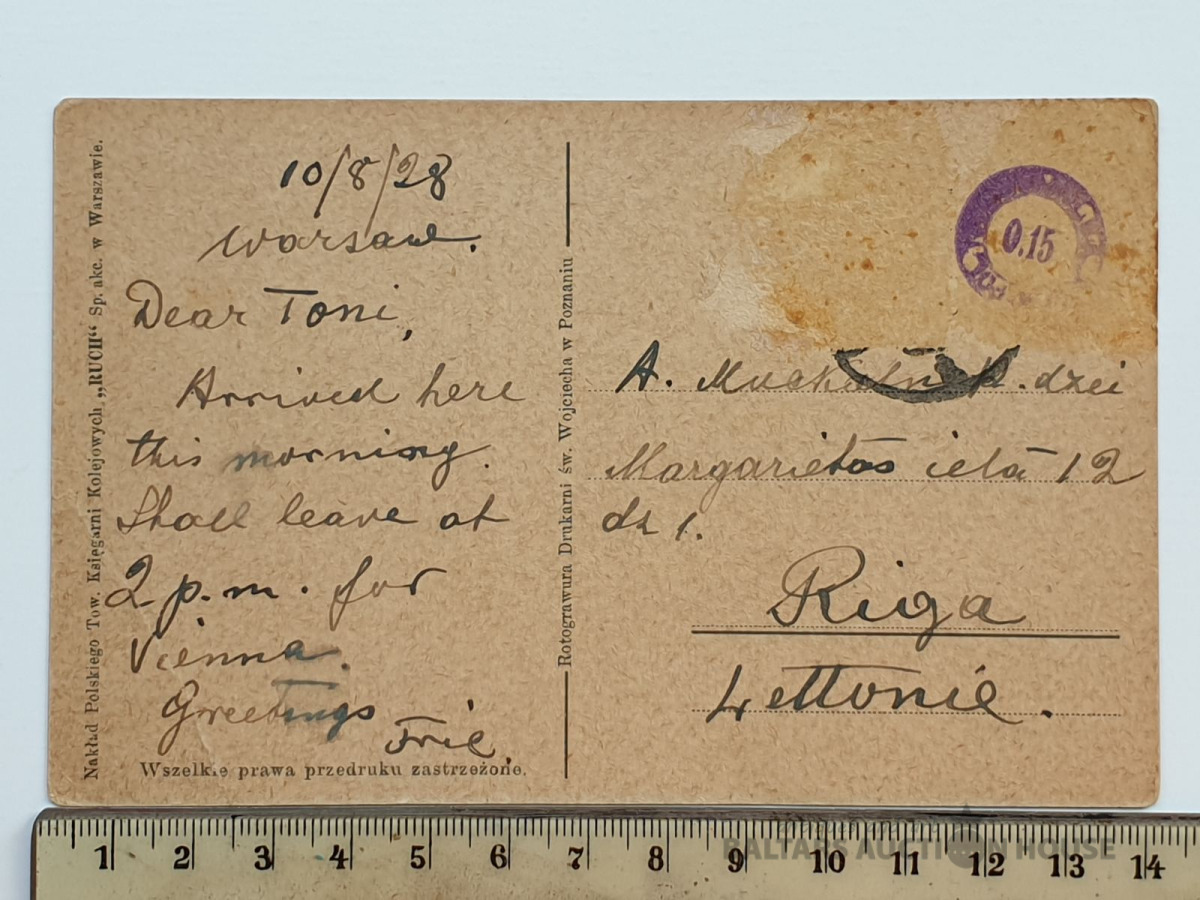 Nakład Polskiego Tow. Księgarni Kolejowych „RUCH“ Sp. akc. w Warszawie.
10/8/28
Warsaw.
Dear Toni,
Arrived here
this morning.
Shall leave at
2 p.m. for
Vienna.
Greetings
Wszelkie prawa przedruku zastrzeżone.
Rotograwura Drukarni św. Wojciecha w Poznaniu
0.15
A. dzei
Margarietas ielā 12
dz 1.
Riga
Lettonie.
1 2 3 4 5 6 7 8 9 10 11 12 13 14
BALTARS AUCTION HOUSE